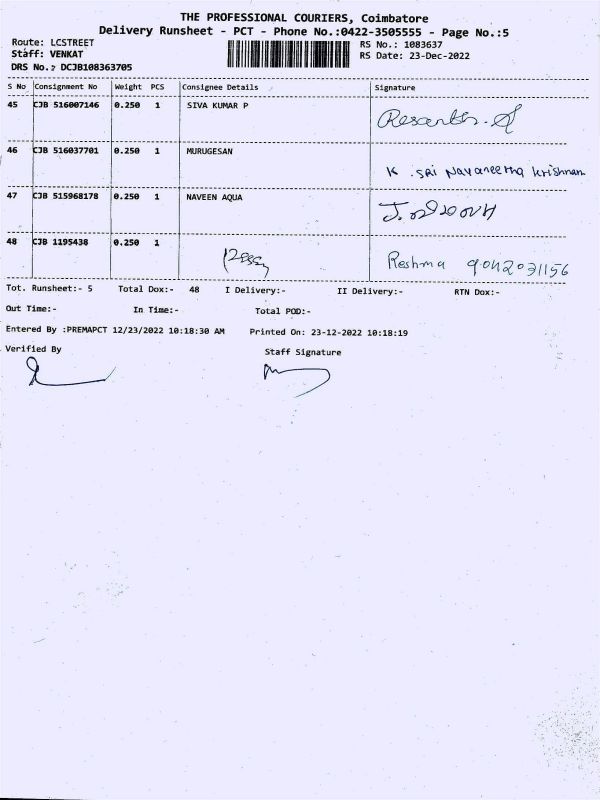 THE PROFESSIONAL COURIERS, Coimbatore
Delivery Runsheet - PCT - Phone No.:0422-3505555 - Page No.:5
Route: LCSTREET
Staff: VENKAT
DRS No.: DCJB108363705
RS No.: 1083637
RS Date: 23-Dec-2022
S No Consignment No Weight PCS Consignee Details Signature
45 CJB 516007146 0.250 1 SIVA KUMAR P
46 CJB 516037701 0.250 1 MURUGESAN K. SRI Navaneetha Krishnan
47 CJB 515968178 0.250 1 NAVEEN AQUA
48 CJB 1195438 0.250 1 Reshma 9042031156
Tot. Runsheet:- 5 Total Dox:- 48 I Delivery:- II Delivery:- RTN Dox:-
Out Time:- In Time:- Total POD:-
Entered By :PREMAPCT 12/23/2022 10:18:30 AM Printed On: 23-12-2022 10:18:19
Verified By Staff Signature